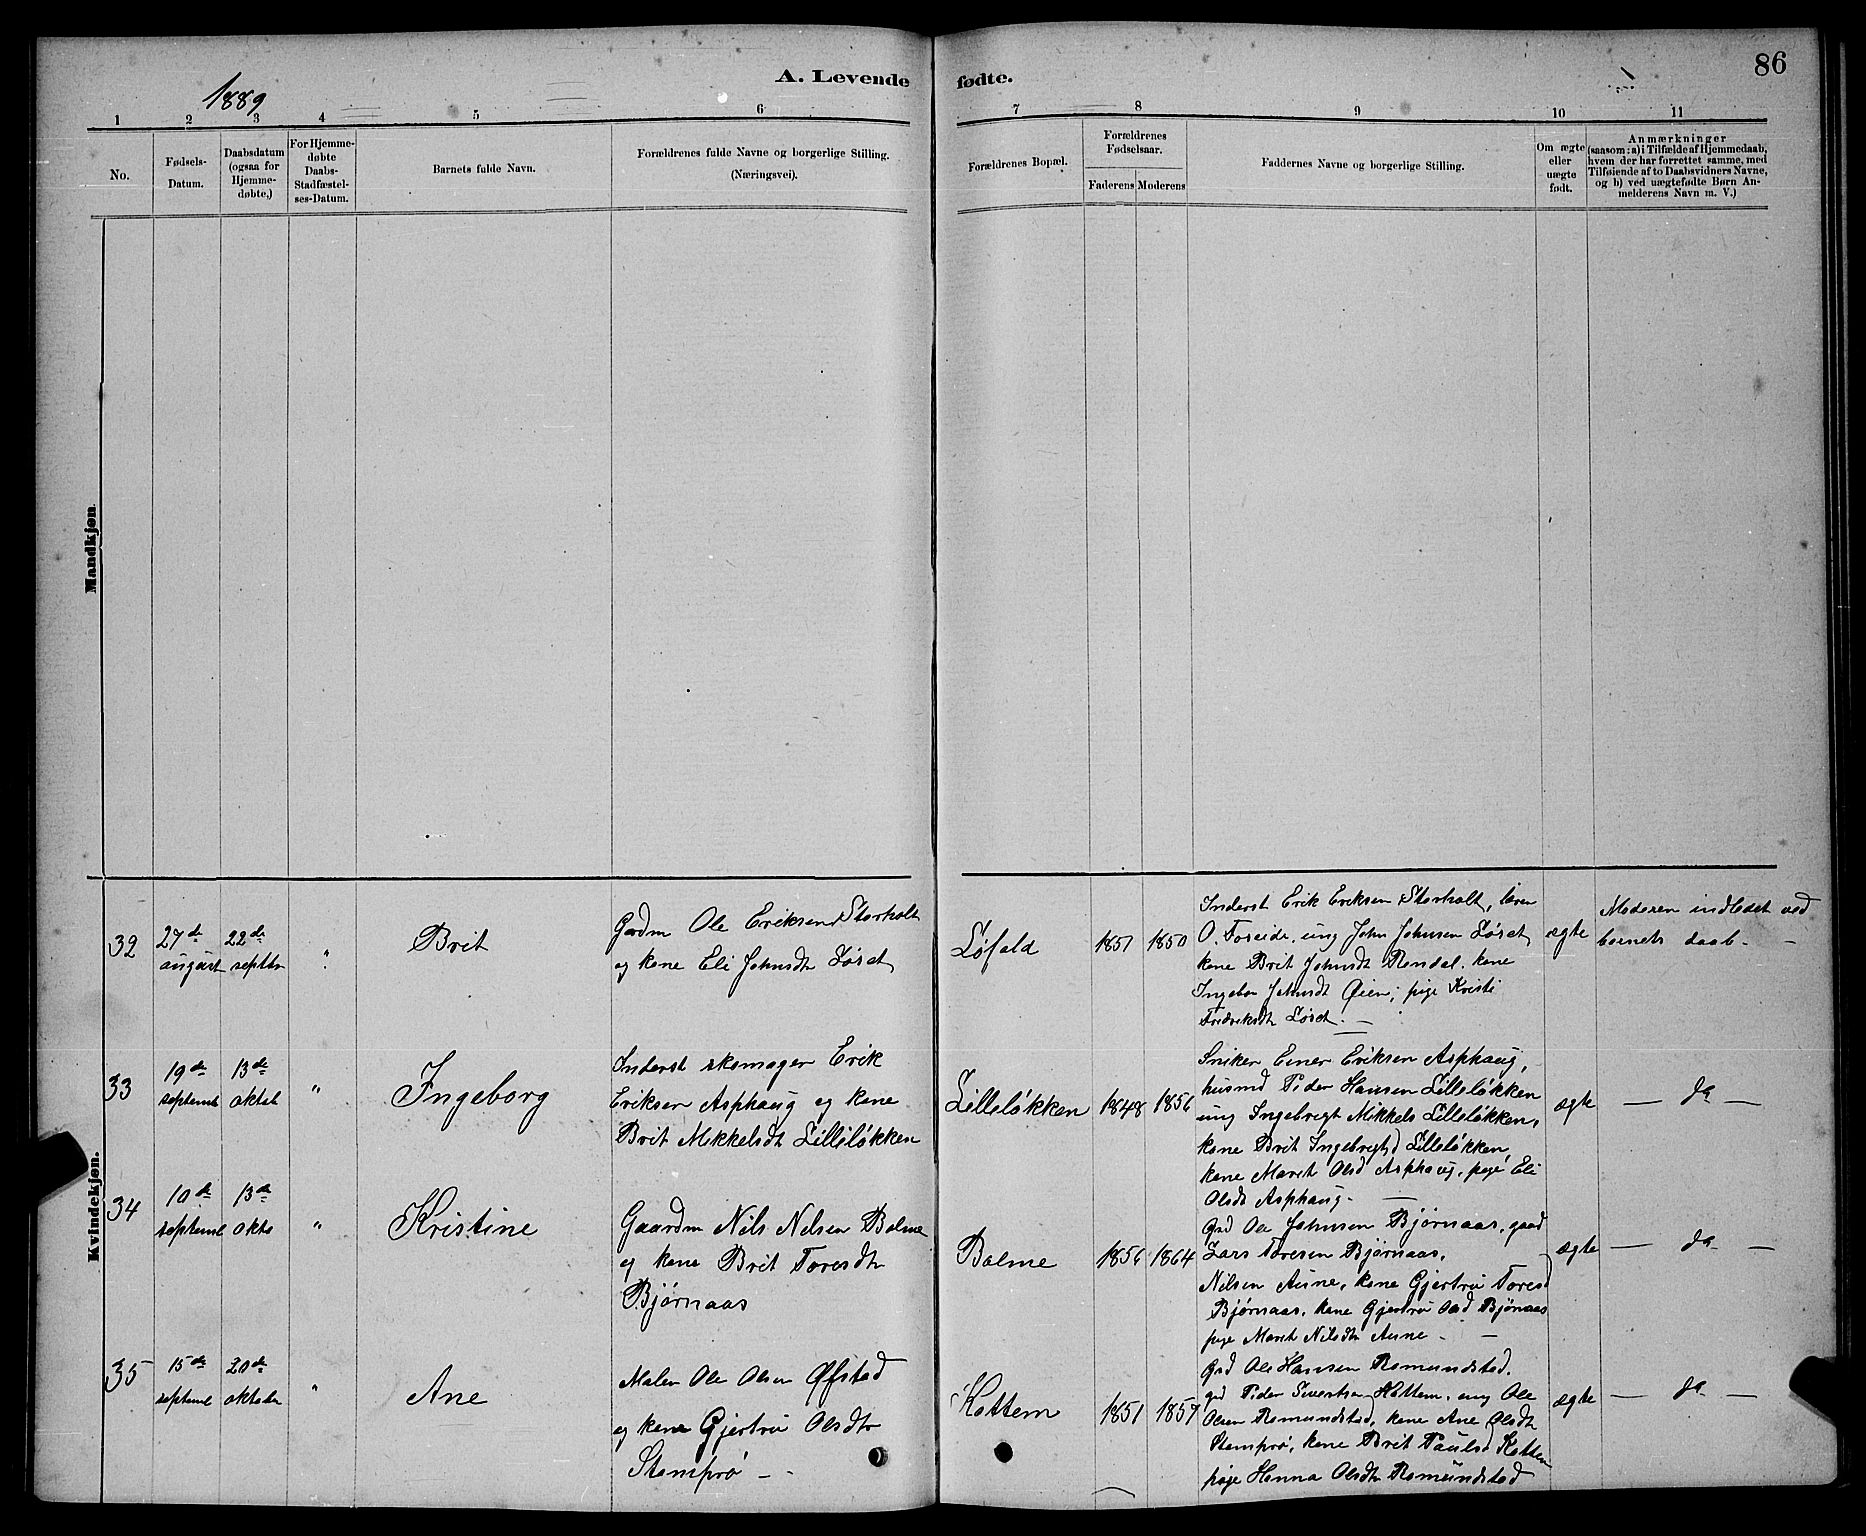 1889
A. Levende
fødte.
86
1 2 3 4 5 6 7 8 9 10 11
No.
Fødsels-
Datum.
Daabsdatum
(ogsaa for
Hjemme-
døbte.)
For Hjemme-
døbte
Daabs-
Stadfæstel-
ses-Datum.
Barnets fulde Navn.
Forældrenes fulde Navne og borgerlige Stilling.
(Næringsvei).
Forældrenes Bopæl.
Forældrenes
Fødselsaar.
Faderens
Moderens
Faddernes Navne og borgerlige Stilling.
Om ægte
eller
uægte
født.
Anmærkninger
(saasom: a) i Tilfælde af Hjemmedaab,
hvem der har forrettet samme, med
Tilføiende af to Daabsvidners Navne,
og b) ved uægtefødte Børn An-
melderens Navn m. V.)
Mandkjøn.
Kvindekjøn.
32
27de
august
22de
septbr
"
Brit
Gardm Ole Eriksen Storholt
og kone Eli Johnsdt Løset
Løfald
1851
1850
Inderst Erik Eriksen Storholt,
O. Foseide, ung John Johnsen Løset
kone Brit Johnsdt Rendal. kone
Ingebor Johnsdt Øien, pige Kristi
Fredriksdt Løset. —
ægte
Moderen indledet ved
barnets daab. —
33
19de
septembr
13de
oktob
"
Ingeborg
Inderst skomager Erik
Eriksen Asphaug og kone
Brit Mikkelsdt Lilleløkken
Lilleløkken
1848
1856
Sniker Einer Eriksen Asphaug,
husmd Peder Hansen Lilleløkken
ung Ingebrigt Mikkels Lilleløkken,
kone Brit Ingebrigtd Lilleløkken,
kone Marit Olsd Asphaug, pige Eli
Olsdt Asphaug. —
ægte
— da —
34
10de
septembr
13de
oktb
"
Kristine
Gaardm Nils Nilsen Bolme
og kone Brit Toresdtr
Bjørnaas
Bolme
1856
1864
Grd Ole Johnsen Bjørnaas, gaard
Lars Toresen Bjørnaas,
Nilsen Aune, kone Gjertru Toresd
Bjørnaas, kone Gjertru Olsd Bjørnaas
pige Marit Nilsdtr Aune — —
ægte
— da —
35
15de
septembr
20de
oktober
"
Ane
Maler Ole Olsen Øfstad
og kone Gjertru Olsdtr
Stomprø —
Kottem
1851
1857
Grd Ole Hansen Romundstad.
grd Peder Sivertsen Hottem, ung Ole
Olsen Romundstad, kone Ane Olsdtr
Stomprø, kone Brit Paulsd Kottem
pige Hanna Olsdtr Romundstad
ægte
— da —